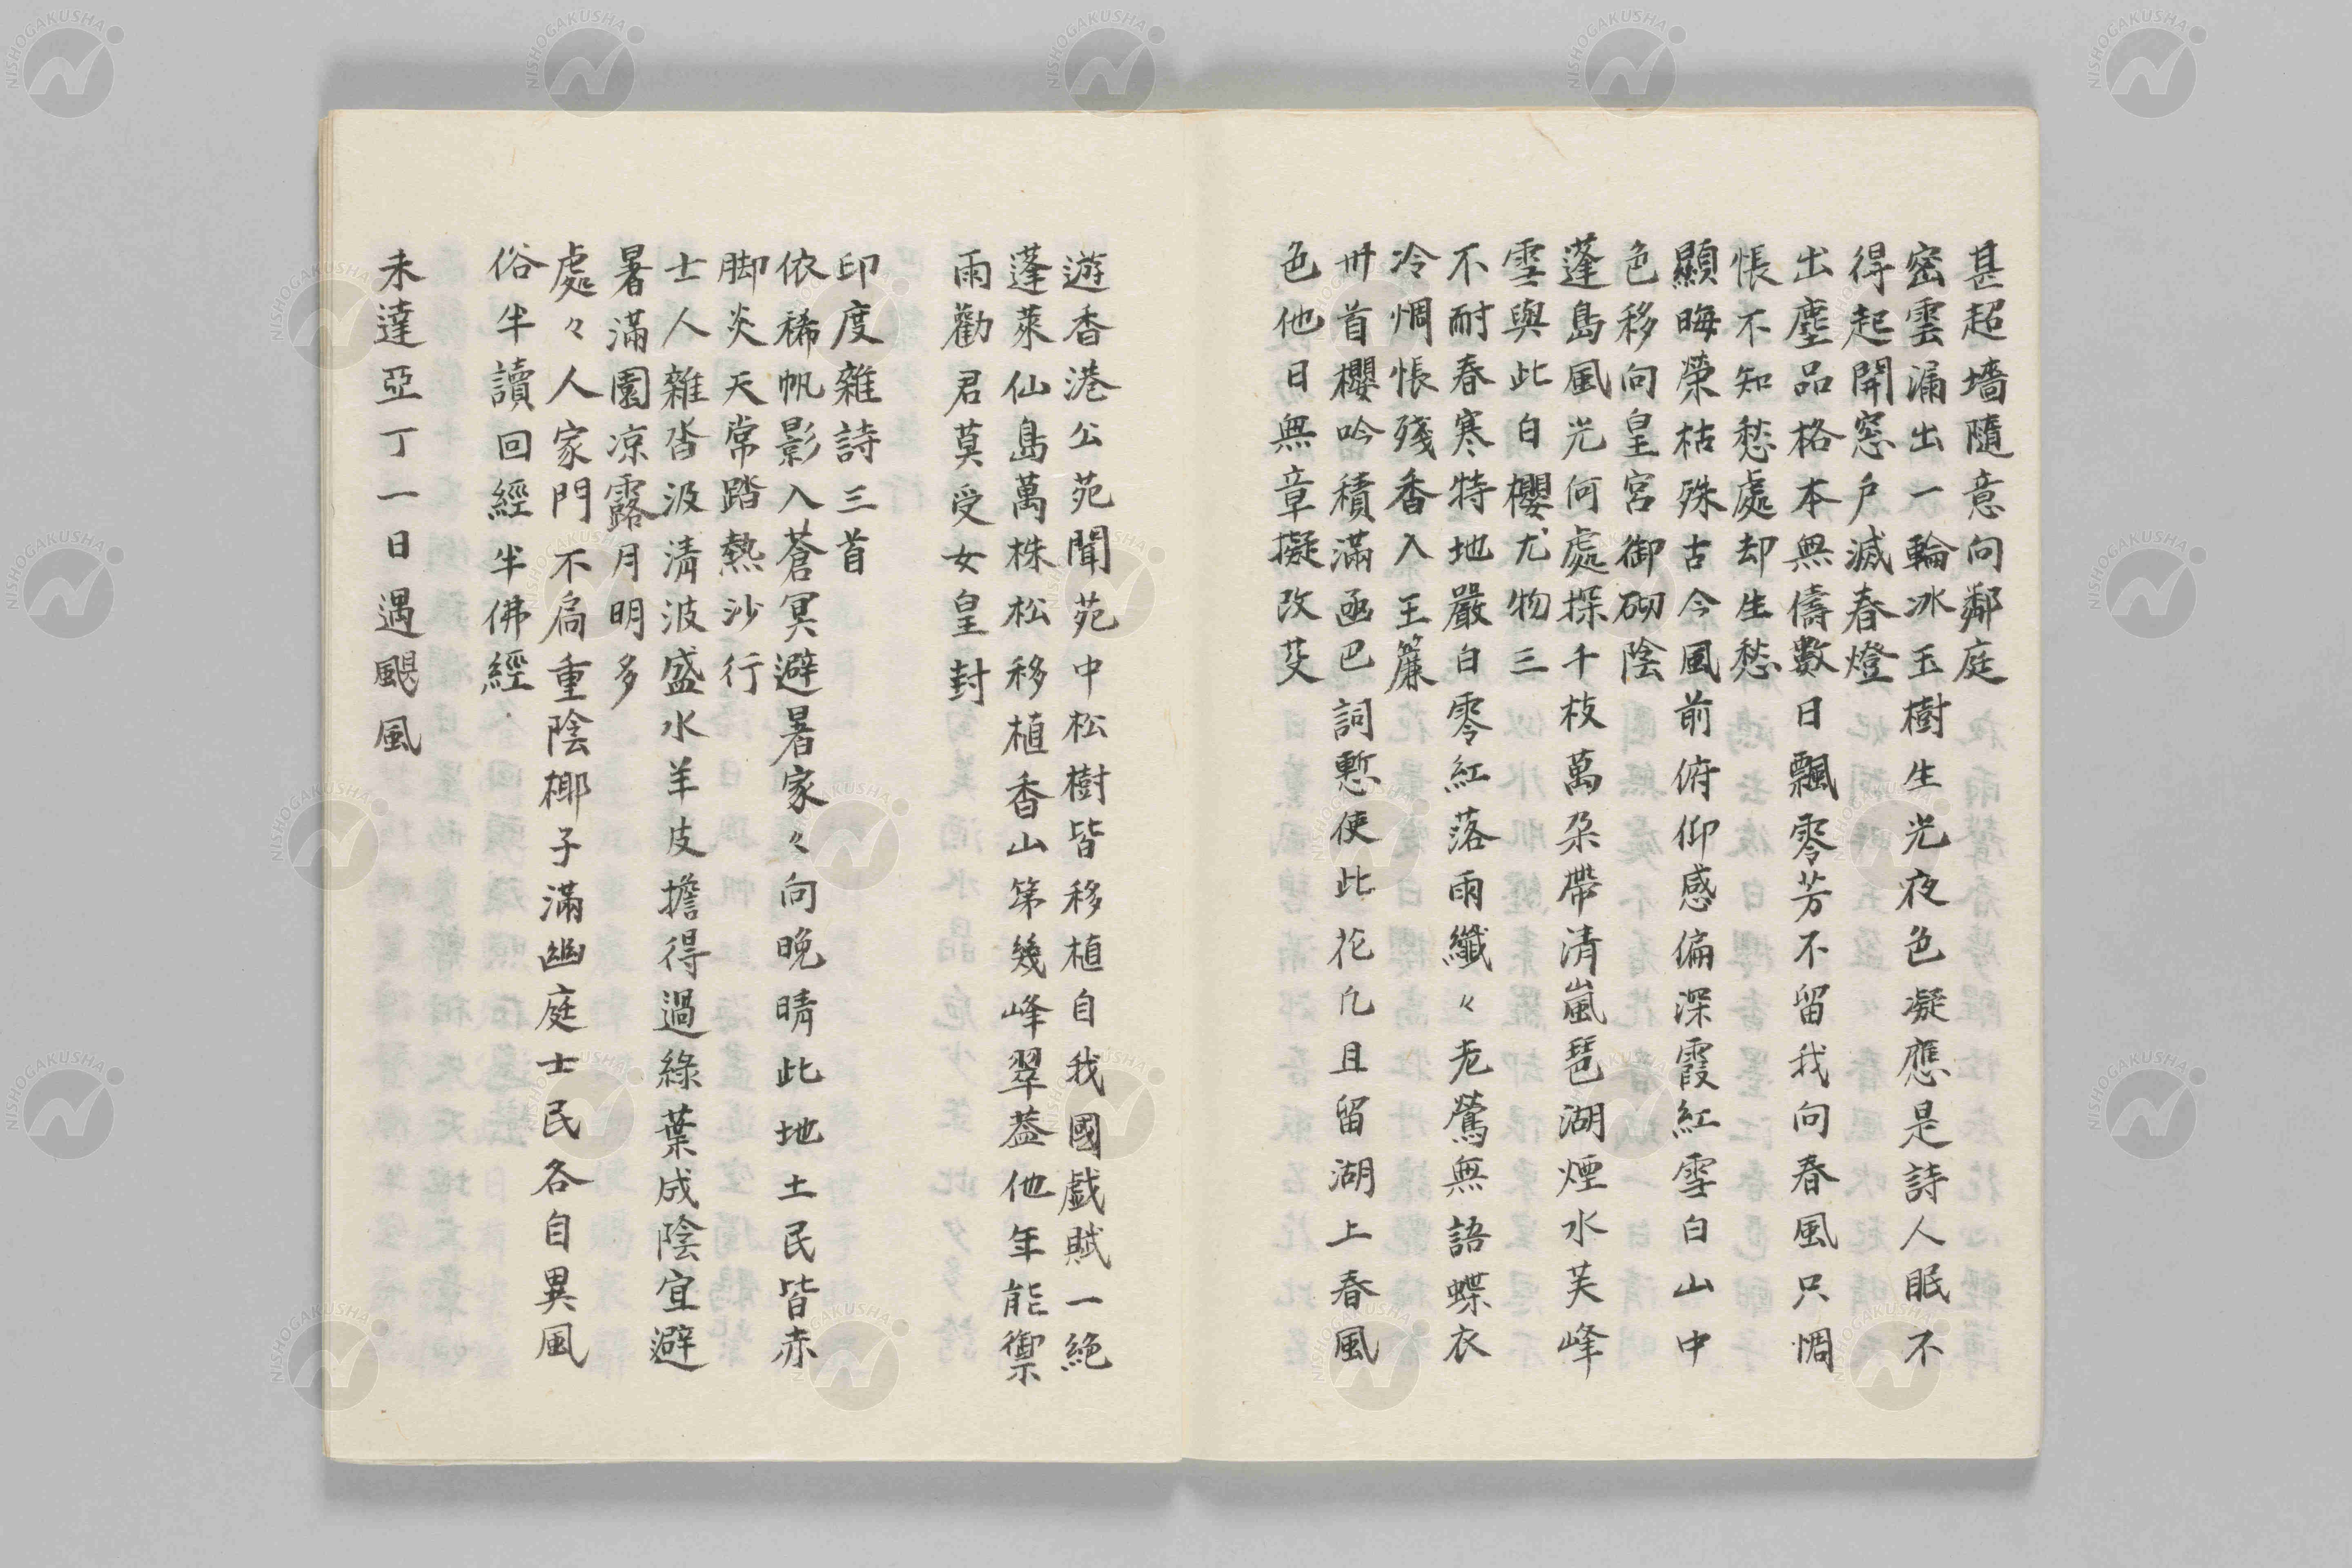 甚超墻隨意向鄰庭
密雲漏出一輪冰玉樹生光夜色凝應是詩人眠不
得起開窓戶滅春燈
出塵品格本無儔數日飄零芳不留我向春風只惆
悵不知愁處却生愁
顯晦榮枯殊古今風前俯仰感偏深霞紅雪白山中
色移向皇宮御砌陰
蓬島風光何處探千枝萬朶帶清嵐琶湖煙水芙峰
雪與此白櫻尤物三
不耐春寒特地嚴白零紅落雨纖々老鶯無語蝶衣
冷惆悵殘香入玉簾
卅首櫻吟積滿凾巴詞慙使此花凡且留湖上春風
色他日無章擬改芟
遊香港公苑聞苑中松樹皆移植自我國戲賦一絶
蓬萊仙島萬株松移植香山第幾峰翠蓋他年能禦
雨勸君莫受女皇封
印度雜詩三首
依稀帆影入蒼冥避暑家々向晚晴此地土民皆赤
脚炎天常踏熱沙行
士人雜沓汲清波盛水羊皮擔得過綠葉成陰宜避
暑滿園凉露月明多
處々人家門不扃重陰椰子滿幽庭士民各自異風
俗半讀回經半佛經
未達亞丁一日遇颶風
NISHOGAKUSHA